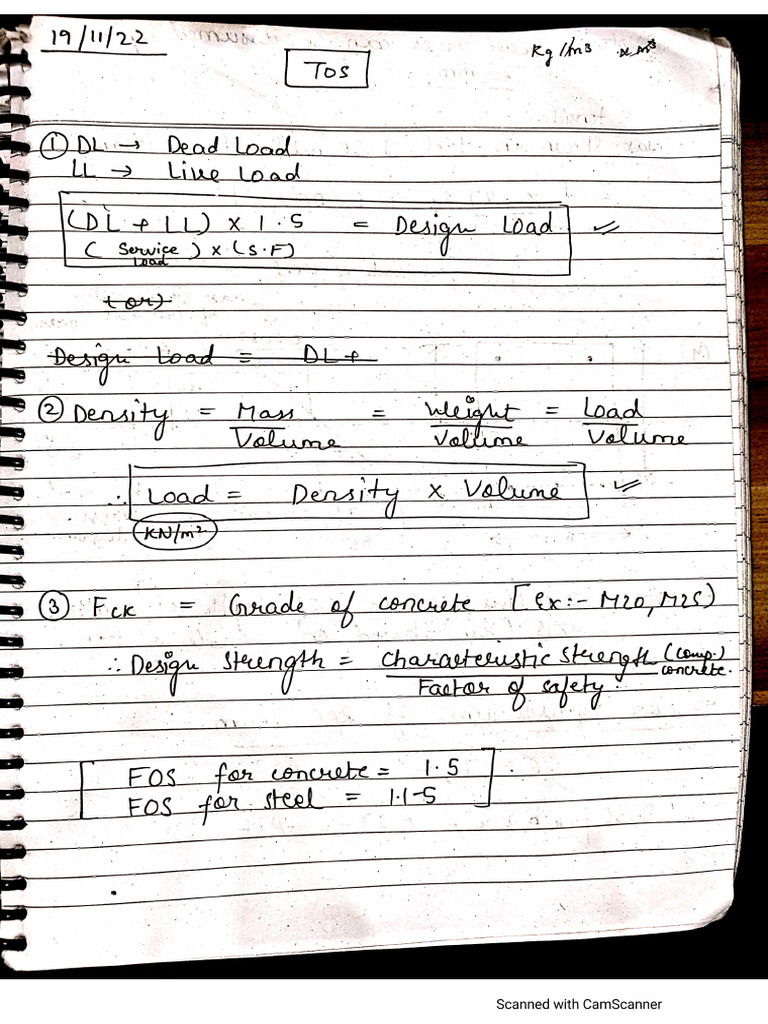 19/11/22
Kg/m³ x m³
TOS
① DL → Dead Load
LL → Live Load
(DL + LL) x 1.5 = Design Load
(Service Load) x (S.F)
(or)
Design Load = DL +
② Density = Mass/Volume = Weight/Volume = Load/Volume
∴ Load = Density x Volume
KN/m²
③ FCK = Grade of concrete [Ex:- M20, M25)
∴ Design Strength = Characteristic Strength (comp.) concrete./Factor of safety.
FOS for concrete = 1.5
FOS for steel = 1.15
Scanned with CamScanner